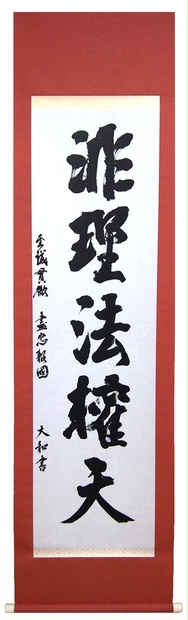 非理法権天
至誠貫徹 盡忠報國 大和書